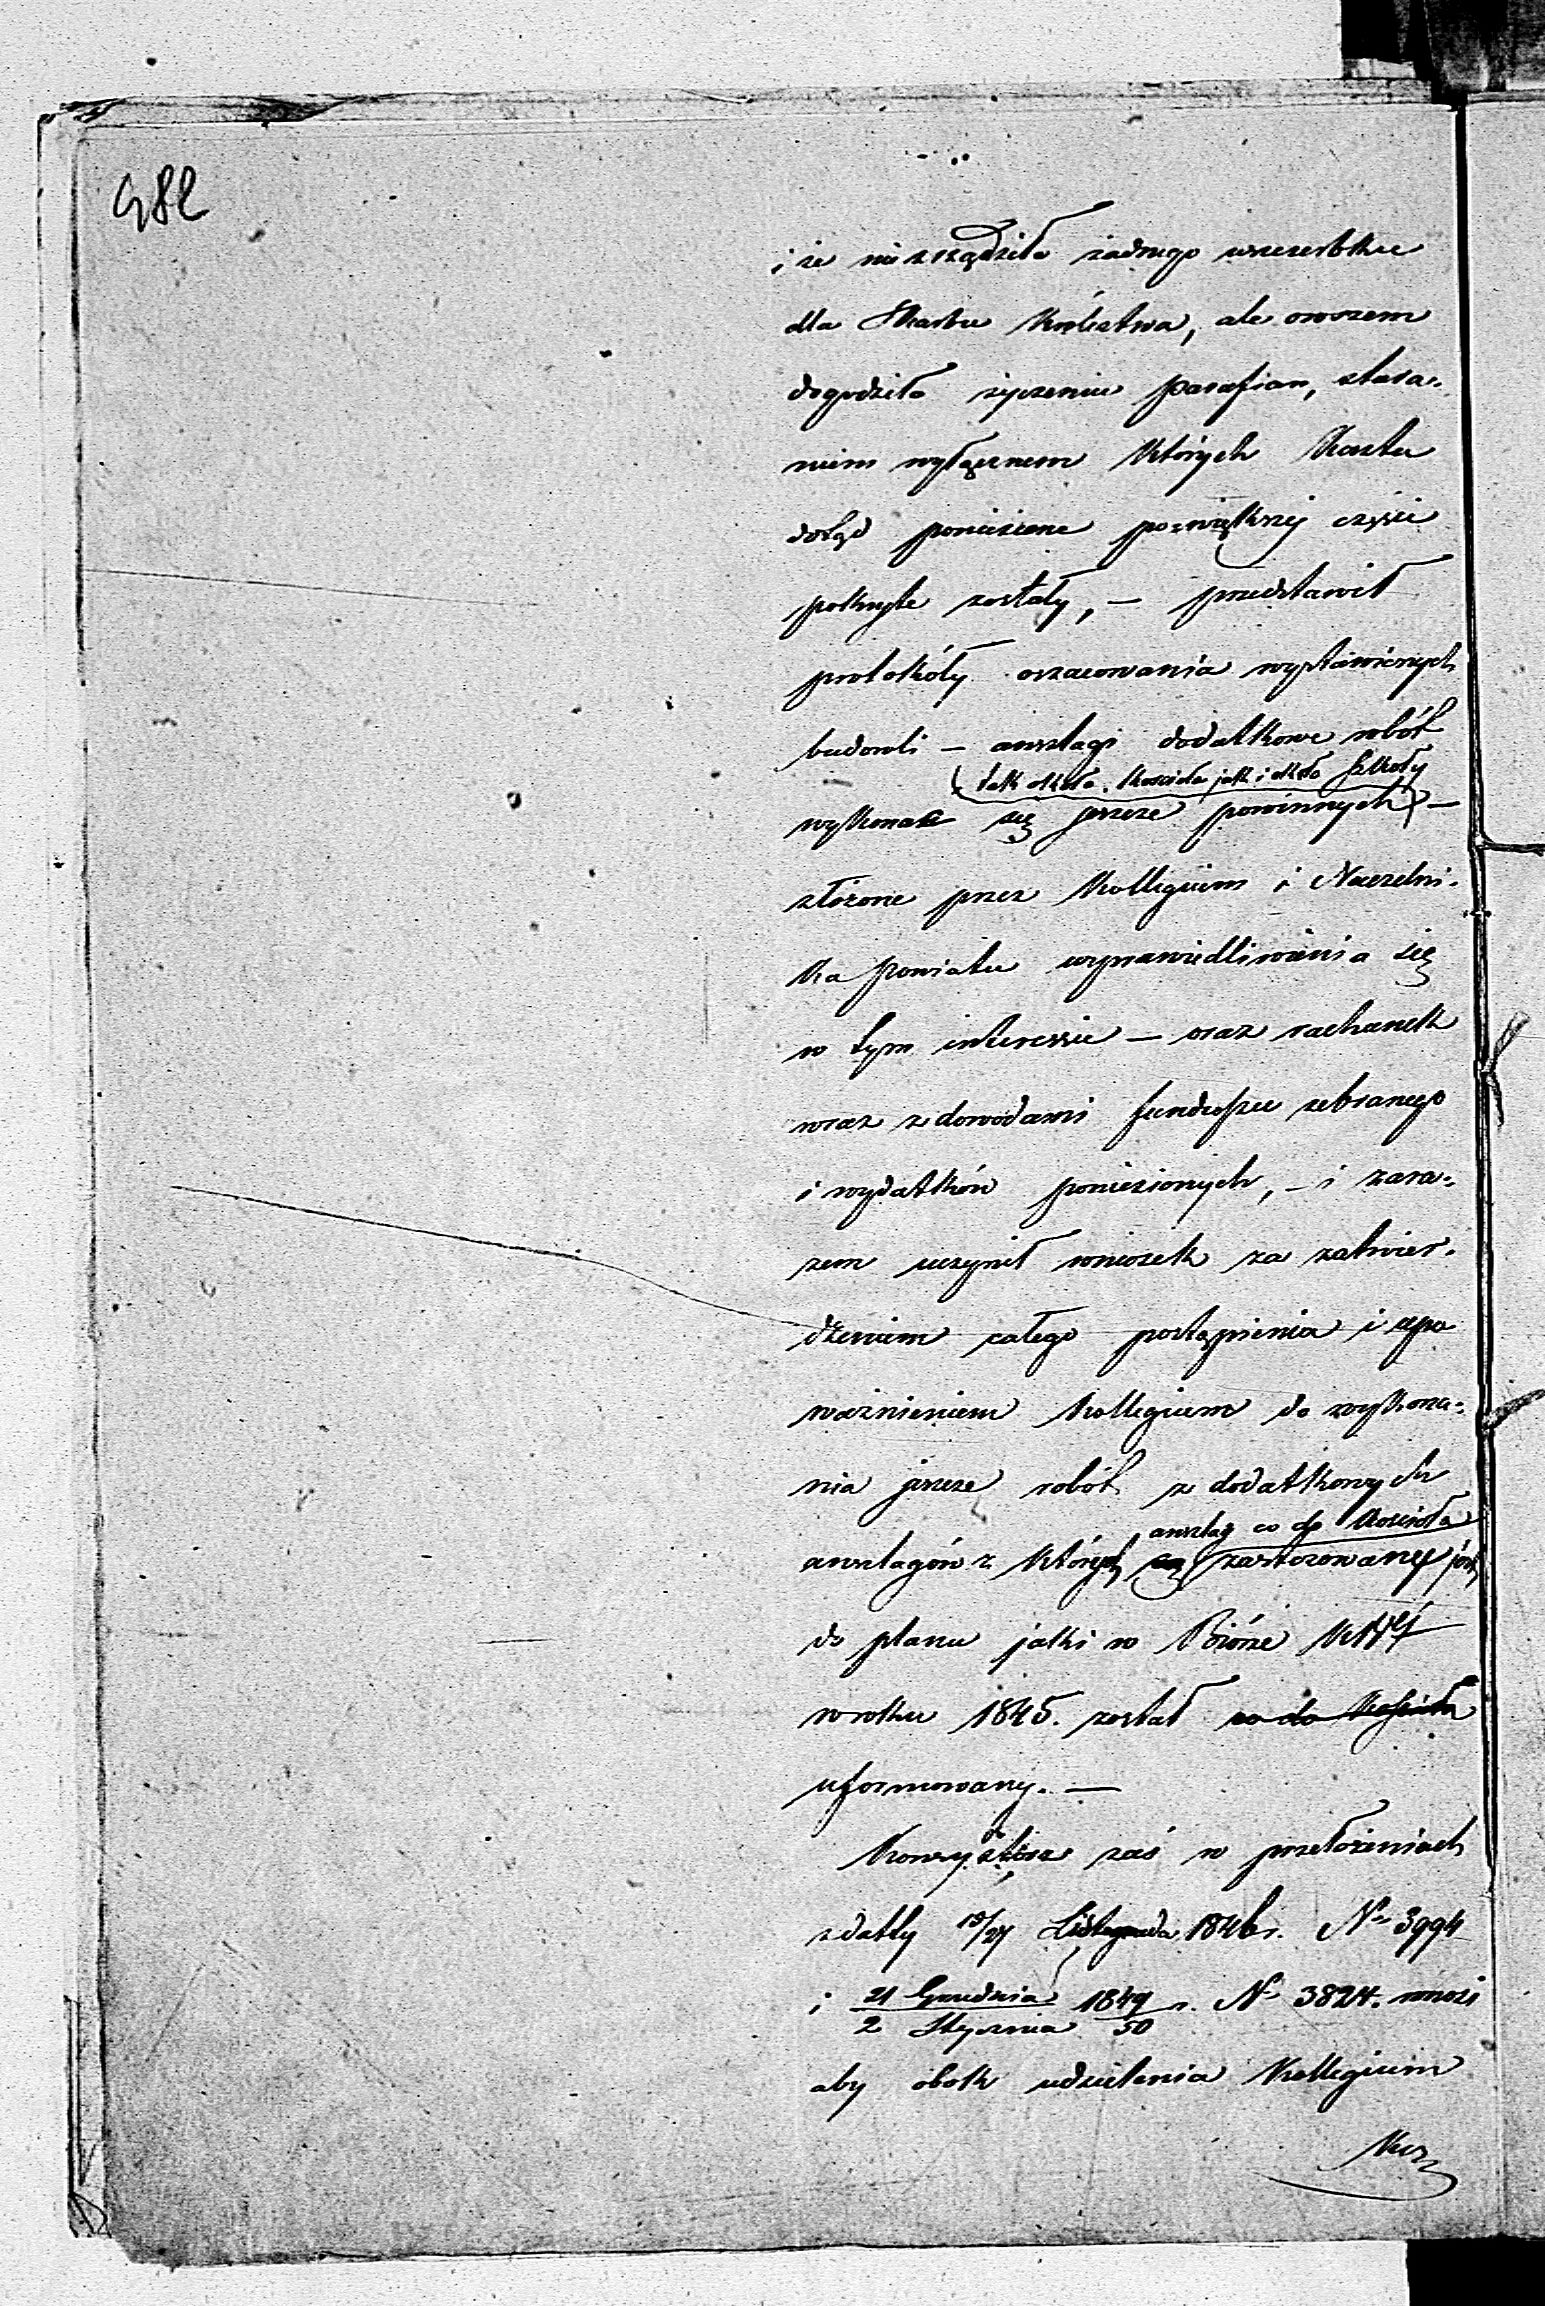 482
i że nie zrządziła żadnego uszczerbku
dla Skarbu Królestwa, ale owszem
dogodziła życzeniu parafian, stara-
niem wyłącznem których koszta
dotąd poniesione po większej części
pokryte zostały, — przedstawił
protokóły oszacowania wystawionych
budowli — anszlagi dodatkowe robót
tak około kościoła jak i około Szkoły
wykonać się jeszcze powinnych —
złożone przez Kollegium i Naczelni-
ka powiatu usprawiedliwienia się
w tym interessie — oraz rachunek
wraz z dowodami funduszu zebranego
i wydatków poniesionych, — i zara-
zem uczynił wniosek za zatwier-
dzeniem całego postąpienia i upo
ważnieniem Kollegium do wykona-
nia jeszcze robót z dodatkowych
anszlag co do Kościoła
anszlagów z których zastosowany jest
do planu jaki w Biórze
w roku 1845. został co do Kościoła
uformowany. —
Konsystorz zaś w przełożeniach
z datty 15/27 Listopada 1846 r. No 3994
i 21 Grudnia / 2 Stycznia 1849/50 r. No 3824. wnosi
aby obok udzielenia Kollegium